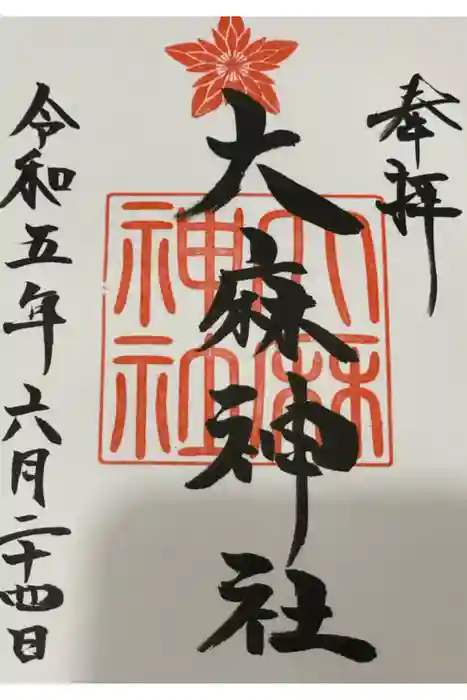 奉拝
大麻神社
大麻神社
令和五年六月二十四日